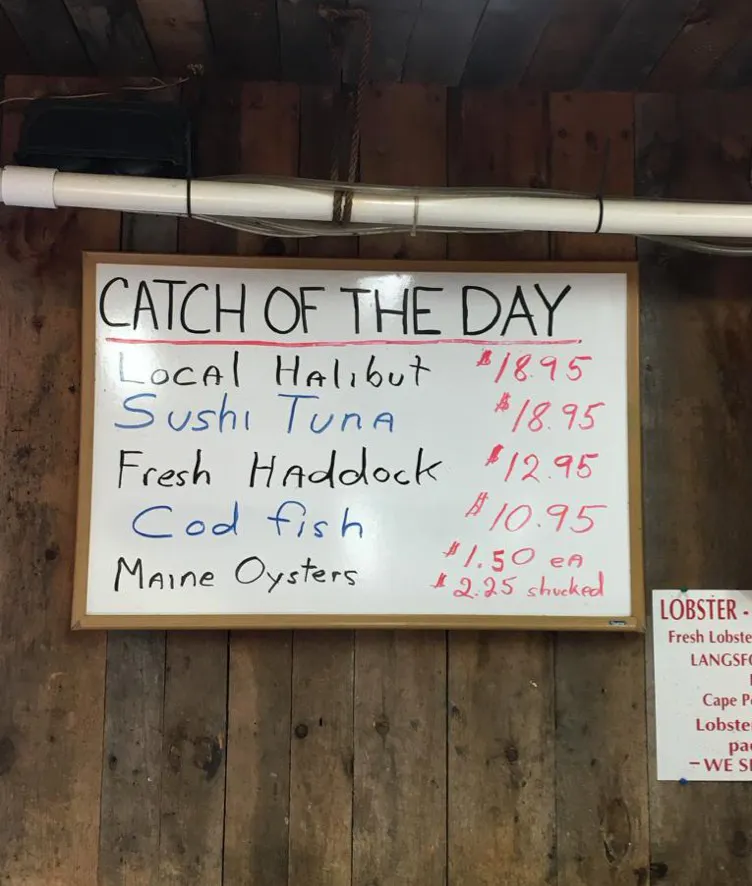 CATCH OF THE DAY
Local Halibut $18.95
Sushi Tuna $18.95
Fresh Haddock $12.95
Cod fish $10.95
Maine Oysters $1.50 ea
$2.25 shucked
LOBSTER -
Fresh Lobste
LANGSFO
Cape Po
Lobste
pac
- WE SE